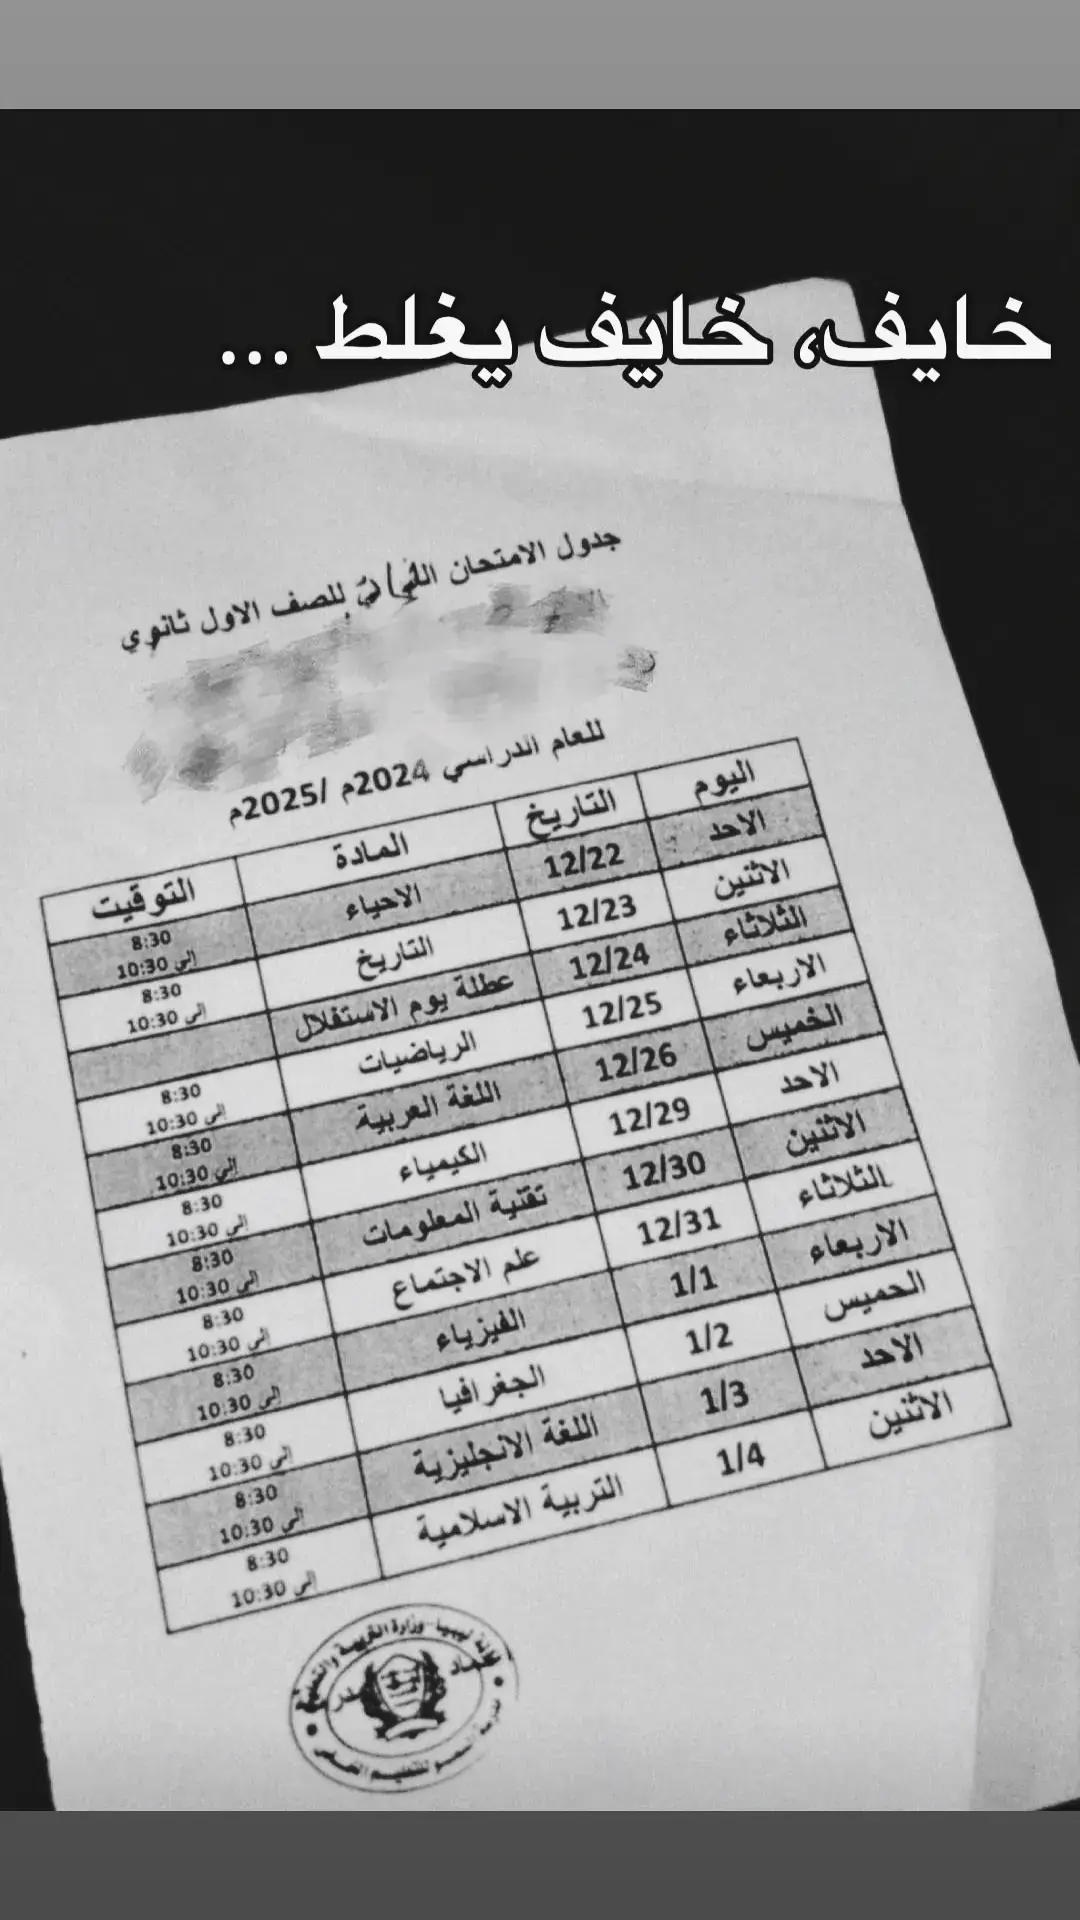 خايف، خايف يغلط ...
جدول الامتحان النهائي للصف الاول ثانوي
للعام الدراسي 2024م /2025م
اليوم التاريخ المادة التوقيت
الاحد 12/22 الاحياء 8:30 إلى 10:30
الاثنين 12/23 التاريخ 8:30 إلى 10:30
الثلاثاء 12/24 عطلة يوم الاستقلال
الاربعاء 12/25 الرياضيات 8:30 إلى 10:30
الخميس 12/26 اللغة العربية 8:30 إلى 10:30
الاحد 12/29 الكيمياء 8:30 إلى 10:30
الاثنين 12/30 تقنية المعلومات 8:30 إلى 10:30
الثلاثاء 12/31 علم الاجتماع 8:30 إلى 10:30
الاربعاء 1/1 الفيزياء 8:30 إلى 10:30
الخميس 1/2 الجغرافيا 8:30 إلى 10:30
الاحد 1/3 اللغة الانجليزية 8:30 إلى 10:30
الاثنين 1/4 التربية الاسلامية 8:30 إلى 10:30
ليبيا - وزارة التربية والتعليم
للتعليم